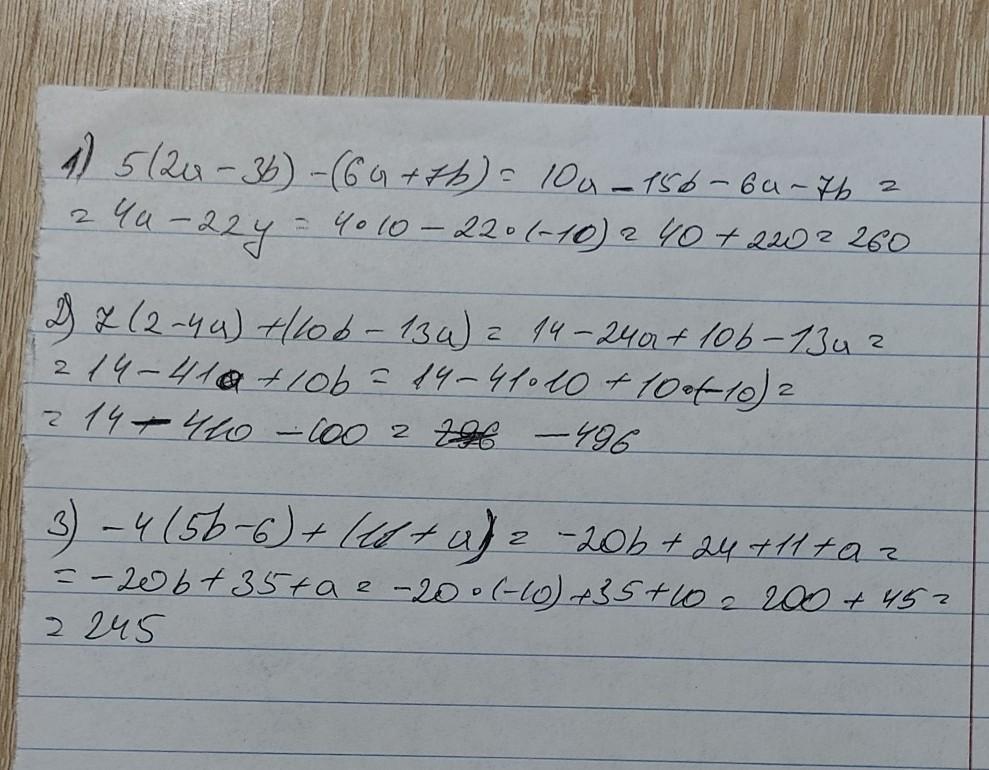 1) 5(2a - 3b) - (6a + 7b) = 10a - 15b - 6a - 7b =
= 4a - 22y = 4·10 - 22·(-10) = 40 + 220 = 260
2) 7(2-4a) + (10b - 13a) = 14 - 24a + 10b - 13a =
= 14 - 41a + 10b = 14 - 41·10 + 10·(-10) =
= 14 - 410 - 100 = - 496
3) -4(5b-6) + (11 + a) = -20b + 24 + 11 + a =
= -20b + 35 + a = -20·(-10) + 35 + 10 = 200 + 45 =
= 245